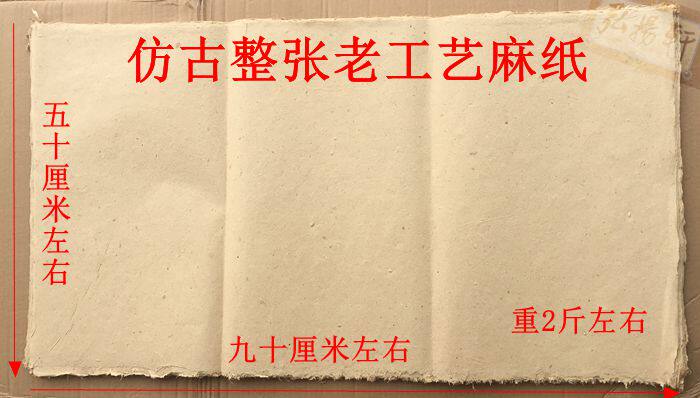 弘扬轩
仿古整张老工艺麻纸
五十厘米左右
重2斤左右
九十厘米左右